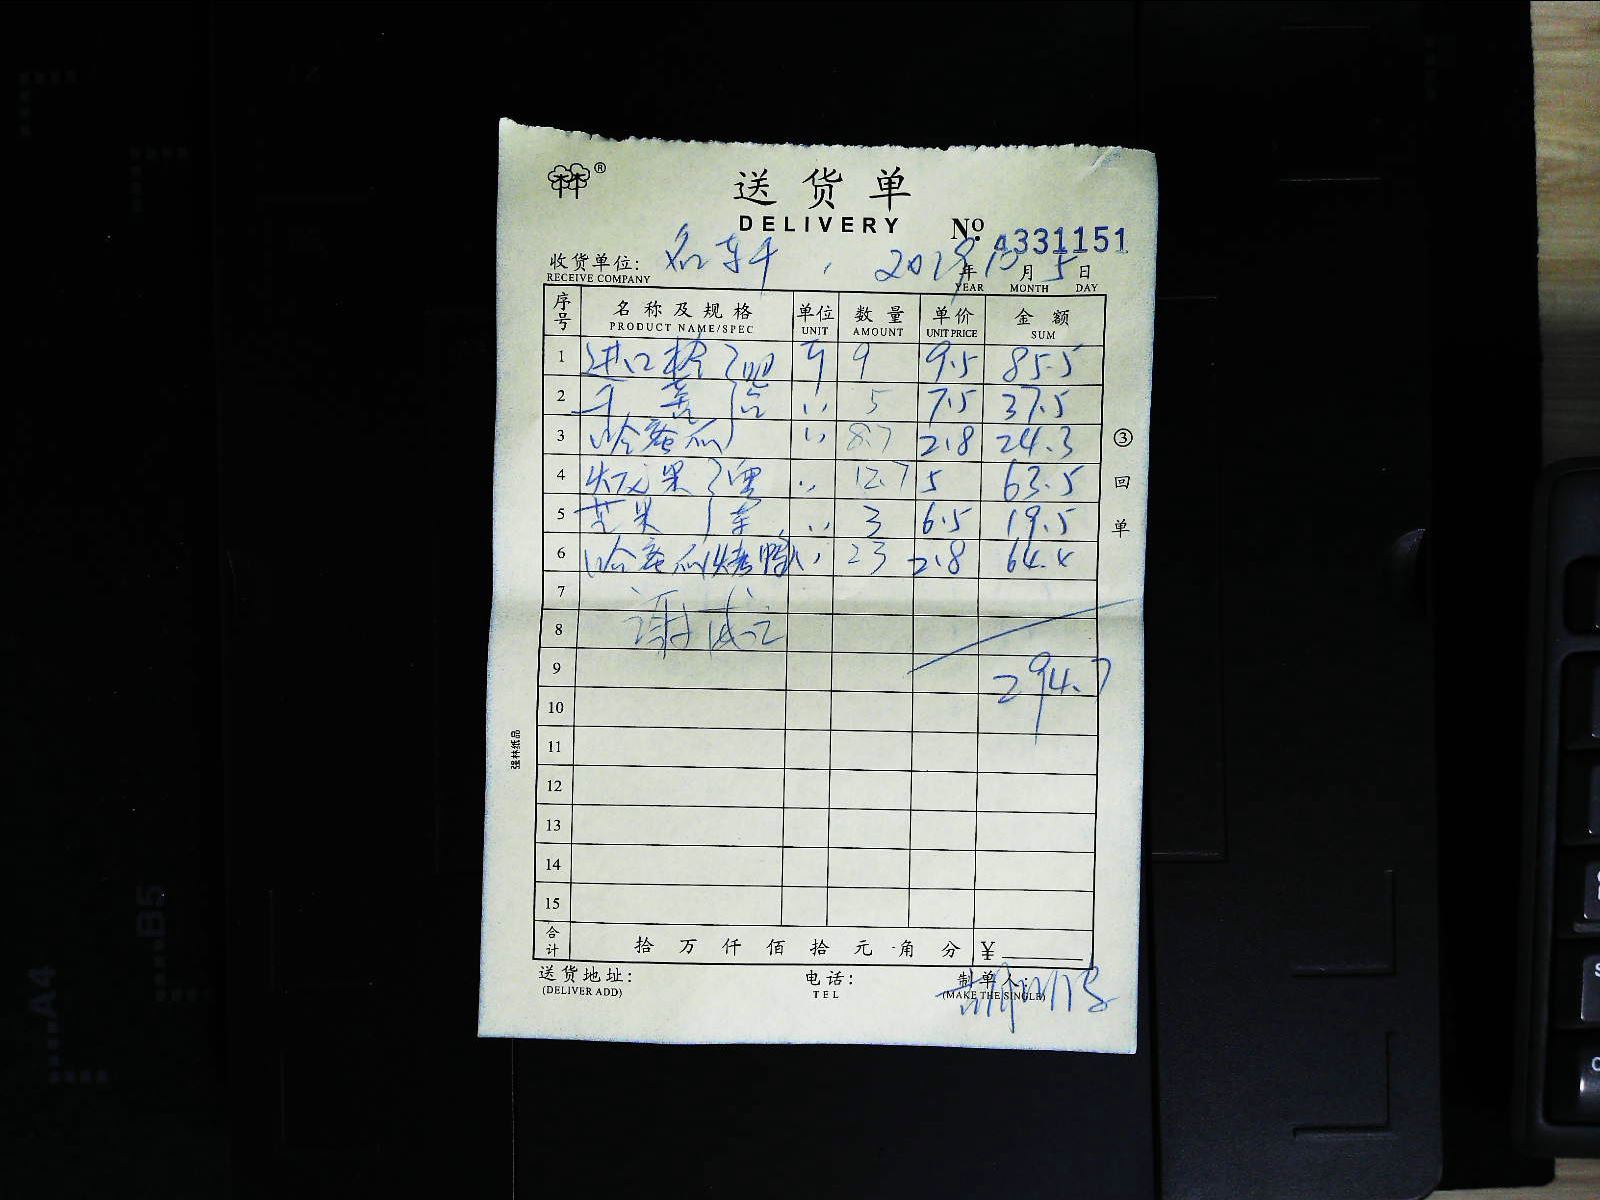 ®
送货单
DELIVERY
No. 4331151
收货单位: 2019年10月5日
RECEIVE COMPANY YEAR MONTH DAY
序号 名称及规格 单位 数量 单价 金额
PRODUCT NAME/SPEC UNIT AMOUNT UNIT PRICE SUM
1 进口橙 9 9.5 85.5
2 5 7.5 37.5
3 哈蜜瓜 8.7 2.8 24.3
4 火龙果 12.7 5 63.5
5 芒果 3 6.5 19.5
6 哈蜜瓜 烤鸭 23 2.8 64.4
7
8
9 294.7
10
11
12
13
14
15
合计 拾 万 仟 佰 拾 元 角 分 ¥
送货地址: 电话: 制单人:
(DELIVER ADD) TEL (MAKE THE SINGLE)
③回单
强林纸品
B5
A4